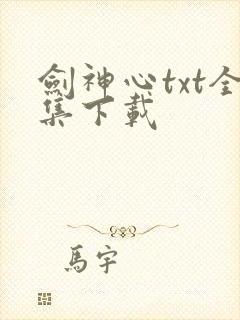 劍神心txt全
集下載
馬宇